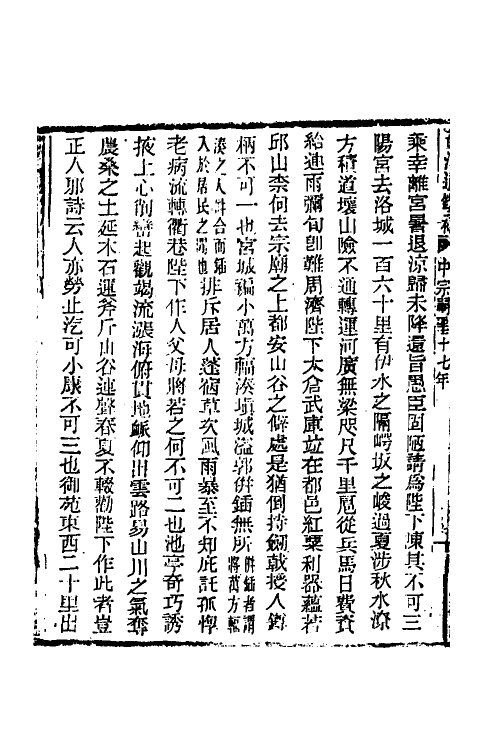 中宗嗣聖十七年
乘幸離宮暑退涼歸未降還旨愚臣固陋請爲陛下陳其不可三
陽宮去洛城一百六十里有伊水之隔崿坂之峻過夏涉秋水潦
方積道壞山險不通轉運河廣無梁咫尺千里扈從兵馬日費資
給連雨彌旬卽難周濟陛下太倉武庫竝在都邑紅粟利器蘊若
邱山柰何去宗廟之上都安山谷之僻處是猶倒持劒戟授人鐏
柄不可一也宮城褊小萬方輻湊塡城溢郭併鍤無所併鍤者謂將萬方輻
湊之人倂合而鍤入於居民之閒也排斥居人蓬宿草次風雨暴至不知庇託孤惸
老病流轉衢巷陛下作人父母將若之何不可二也池亭奇巧誘
掖上心削巒起觀竭流漲海俯貫地脈仰出雲路易山川之氣奪
農桑之土延木石運斧斤山谷連聲春夏不輟勸陛下作此者豈
正人邪詩云人亦勞止汔可小康不可三也御苑東西二十里出